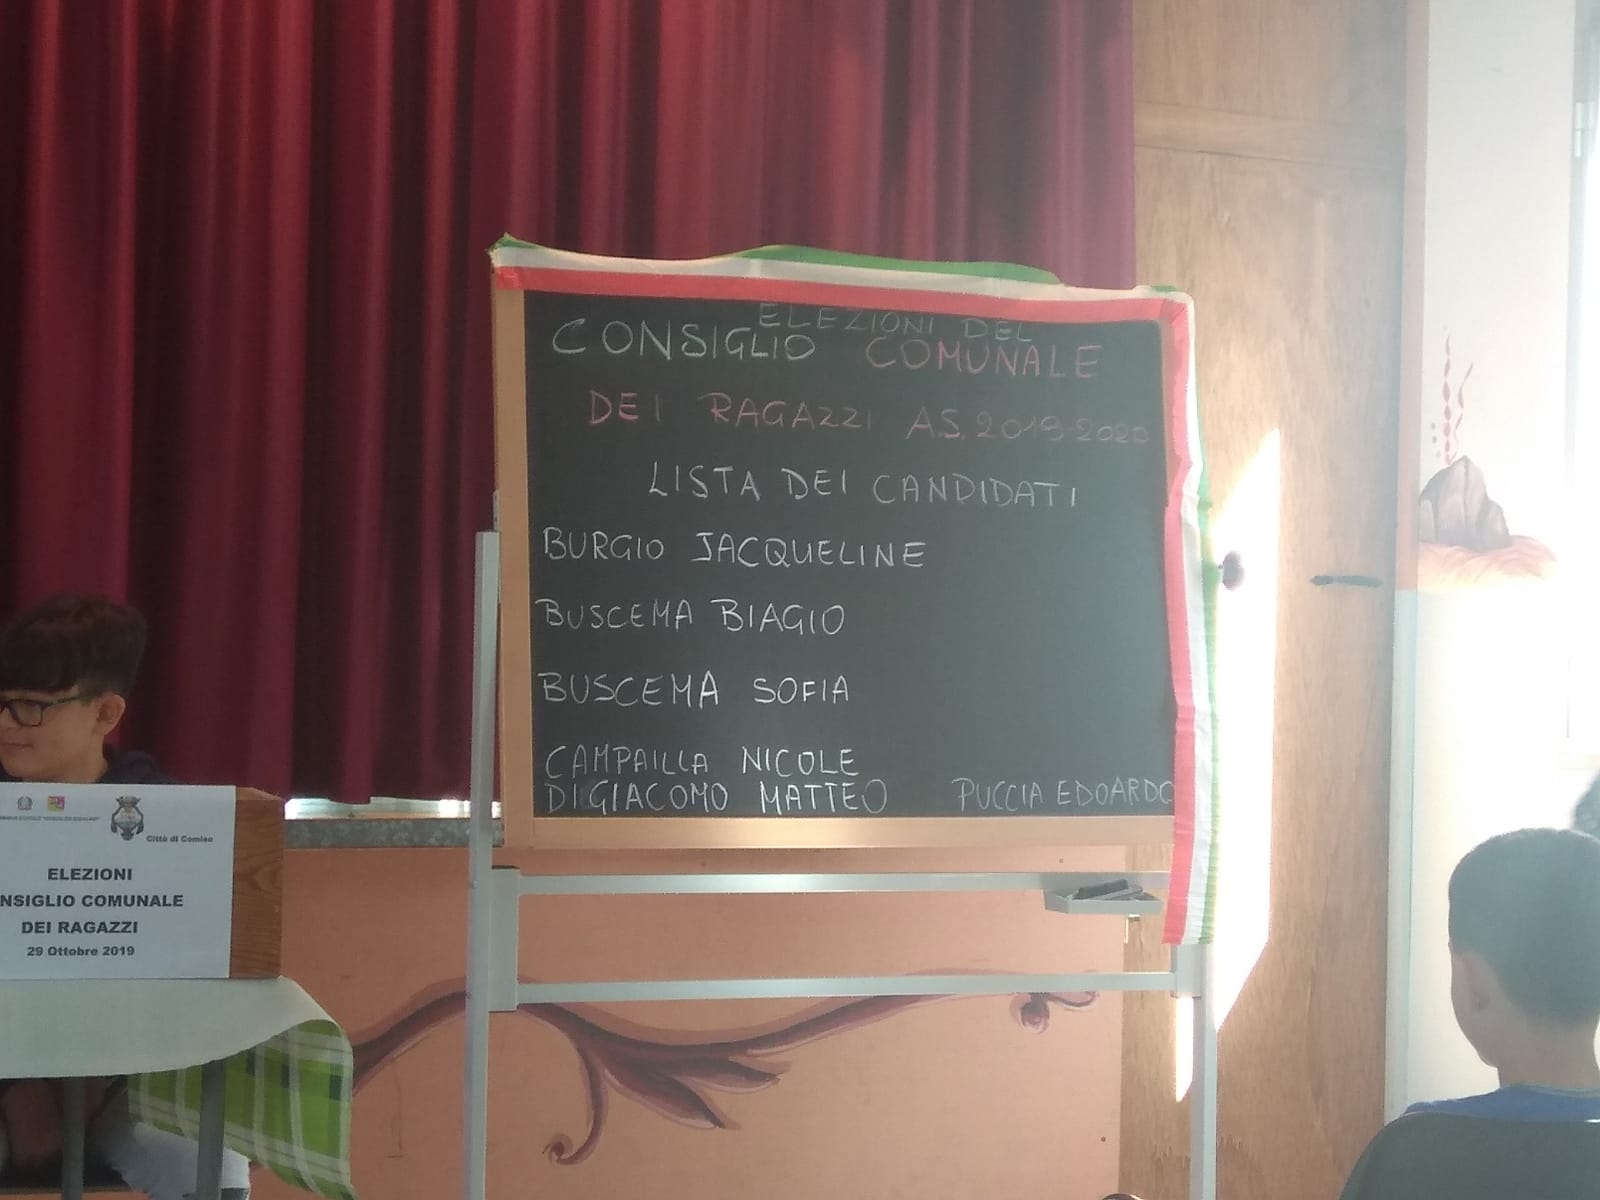 ELEZIONI DEL
CONSIGLIO COMUNALE
DEI RAGAZZI A.S. 2019-2020
LISTA DEI CANDIDATI
BURGIO JACQUELINE
BUSCEMA BIAGIO
BUSCEMA SOFIA
CAMPAILLA NICOLE
DIGIACOMO MATTEO PUCCIA EDOARDO
Città di Comiso
ELEZIONI
NSIGLIO COMUNALE
DEI RAGAZZI
29 Ottobre 2019